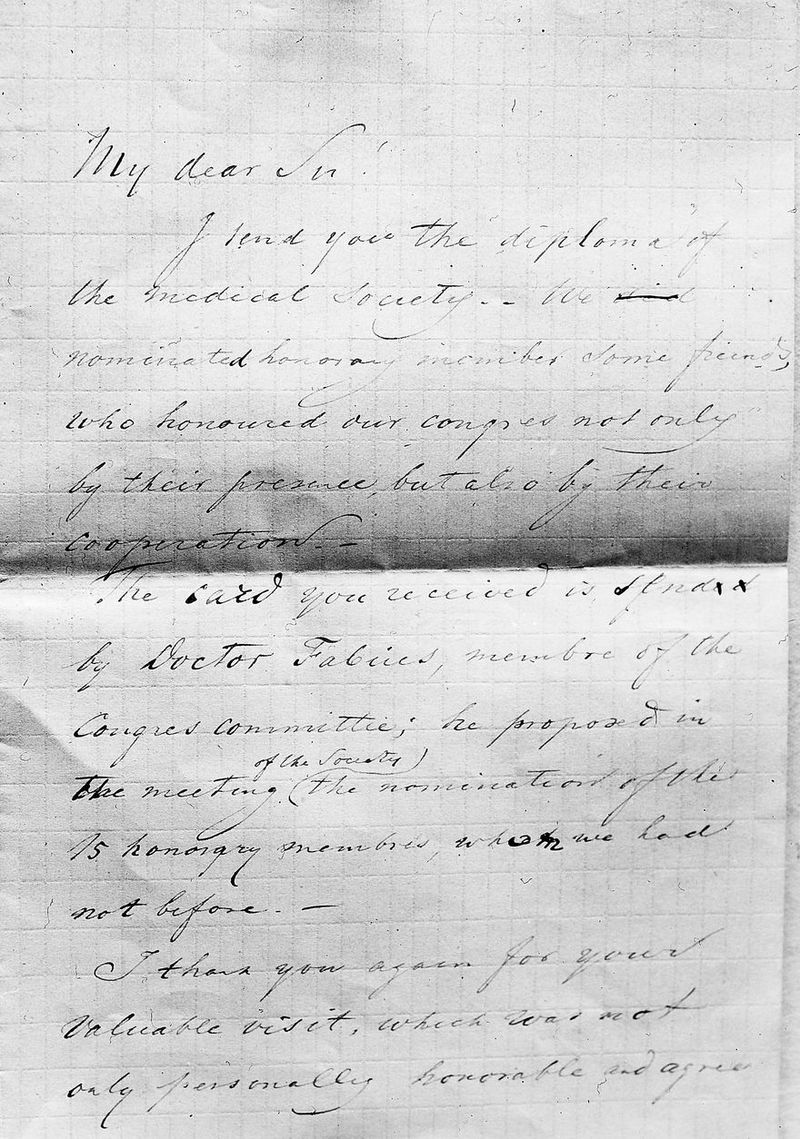 My dear Sir!
I send you the diploma of
the medical Society.- We did
nominated honorary member some friends,
who honoured our congres not only
by their presence, but also by their
cooperation.-
The card you received is send
by Doctor Fabius, membre of the
Congres committie; he proposed in
of the Society)
the meeting (the nomination of the
15 honorary membres, whom we had
not before. -
I thank you again for your
valuable visit, which was not
only personally honorable and agree